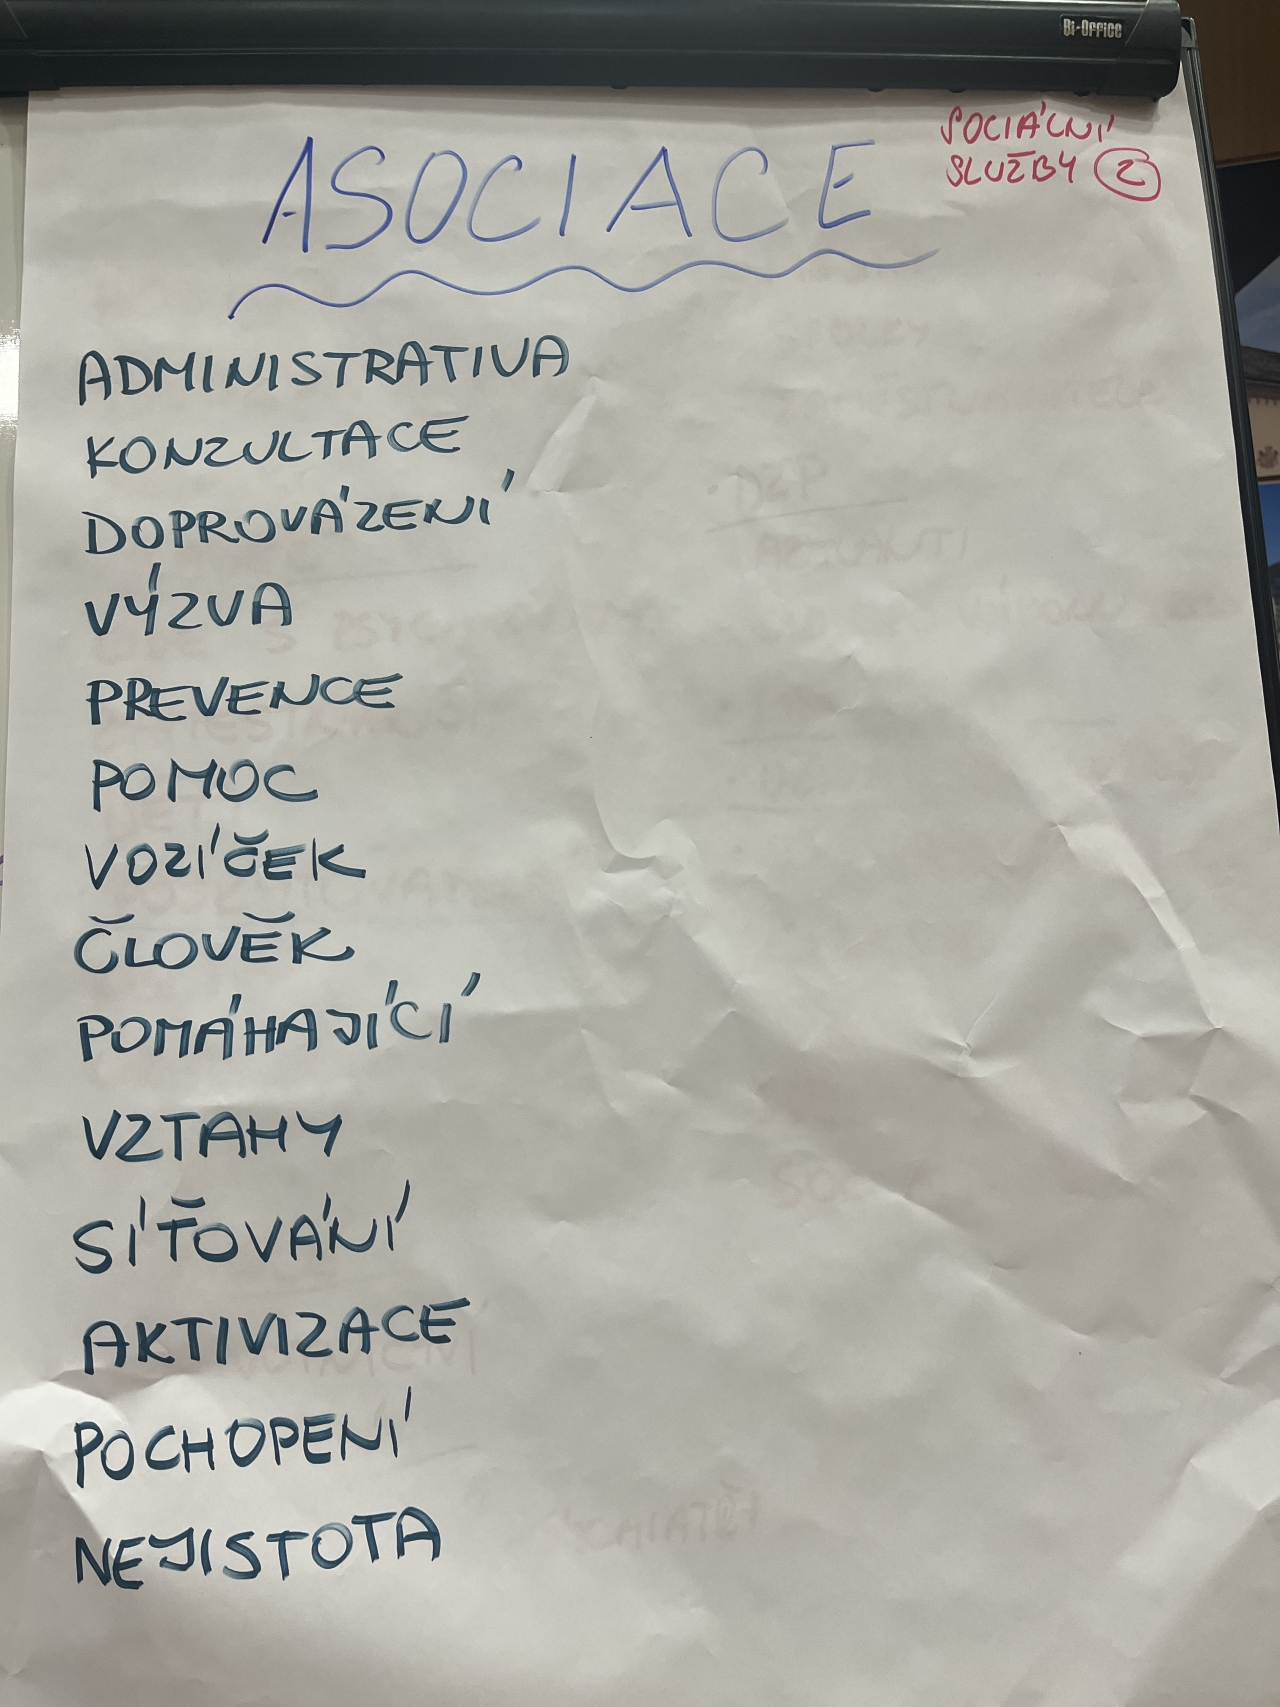 Bi-Office
SOCIÁLNÍ
SLUŽBY 2
ASOCIACE
ADMINISTRATIVA
KONZULTACE
DOPROVÁZENÍ
VÝZVA
PREVENCE
POMOC
VOZÍČEK
ČLOVĚK
POMÁHAJÍCÍ
VZTAHY
SÍŤOVÁNÍ
AKTIVIZACE
POCHOPENÍ
NEJISTOTA